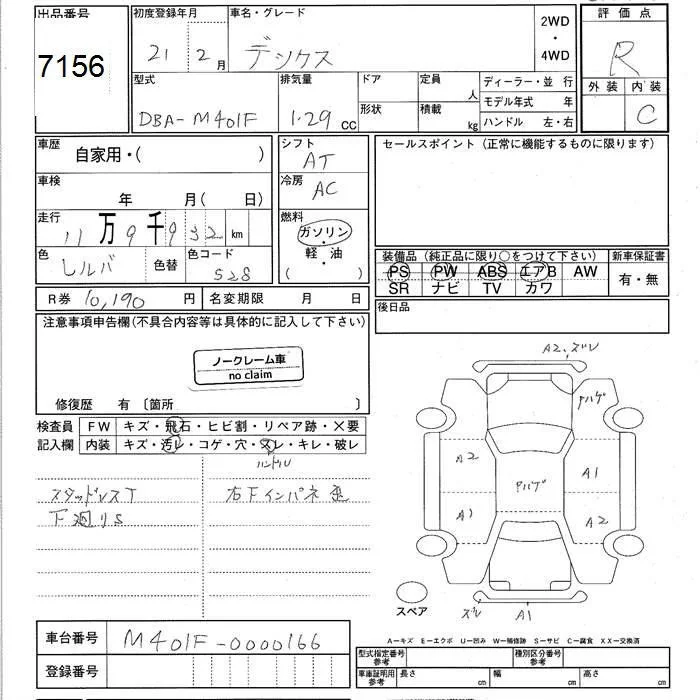 出品番号
7156
初度登録年月
21 2月
車名・グレード
デックス
2WD
・
4WD
評価点
R
外装 内装
C
型式
DBA-M401F
排気量
1.29 CC
ドア
形状
定員
人
積載
kg
ディーラー・並 行
モデル年式 年
ハンドル 左・右
車歴
自家用・( )
車検
年 月( 日)
走行
11万9千932km
色
シルバ
色替
色コード
S28
シフト
AT
冷房
AC
燃料
ガソリン
・
軽・油
( )
セールスポイント(正常に機能するものに限ります)
装備品(純正品に限り○をつけて下さい)
PS PW ABS エアB AW
SR ナビ TV カワ
新車保証書
有・無
R券 10,190 円
名変期限 月 日
後日品
注意事項申告欄(不具合内容等は具体的に記入して下さい)
ノークレーム車
no claim
修復歴 有 〔箇所 〕
検査員
記入欄
FW キズ・飛石・ヒビ割・リペア跡・X要
内装 キズ・汚レ・コゲ・穴・スレ・キレ・破レ
ハンドル
スタッドレスT
下廻りS
右下インパネ歪
A2、ズレ
Pハゲ
A2
A1
Pハゲ
A1
A2
ズレ
A1
スペア
A-キズ E-エクボ U-凹み W-補修跡 S-サビ C-腐食 XX-交換済
車台番号
M401F-0000166
登録番号
型式指定番号
参考
種別区分番号
参考
車庫証明用
参考
長さ cm
幅 cm
高さ cm